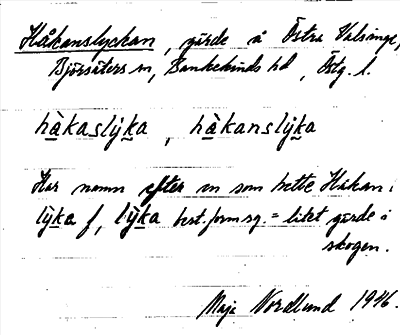 Håkanslyckan, gärde å Östra Valsinge,
Björsäters sn, Bankekinds hd, Östg. l.
hàkaslýka, hàkanslýka
Har namn efter en som hette Håkan.
lýka f, lýka best. form sg. = litet gärde i
skogen.
Maja Nordlund 1946.